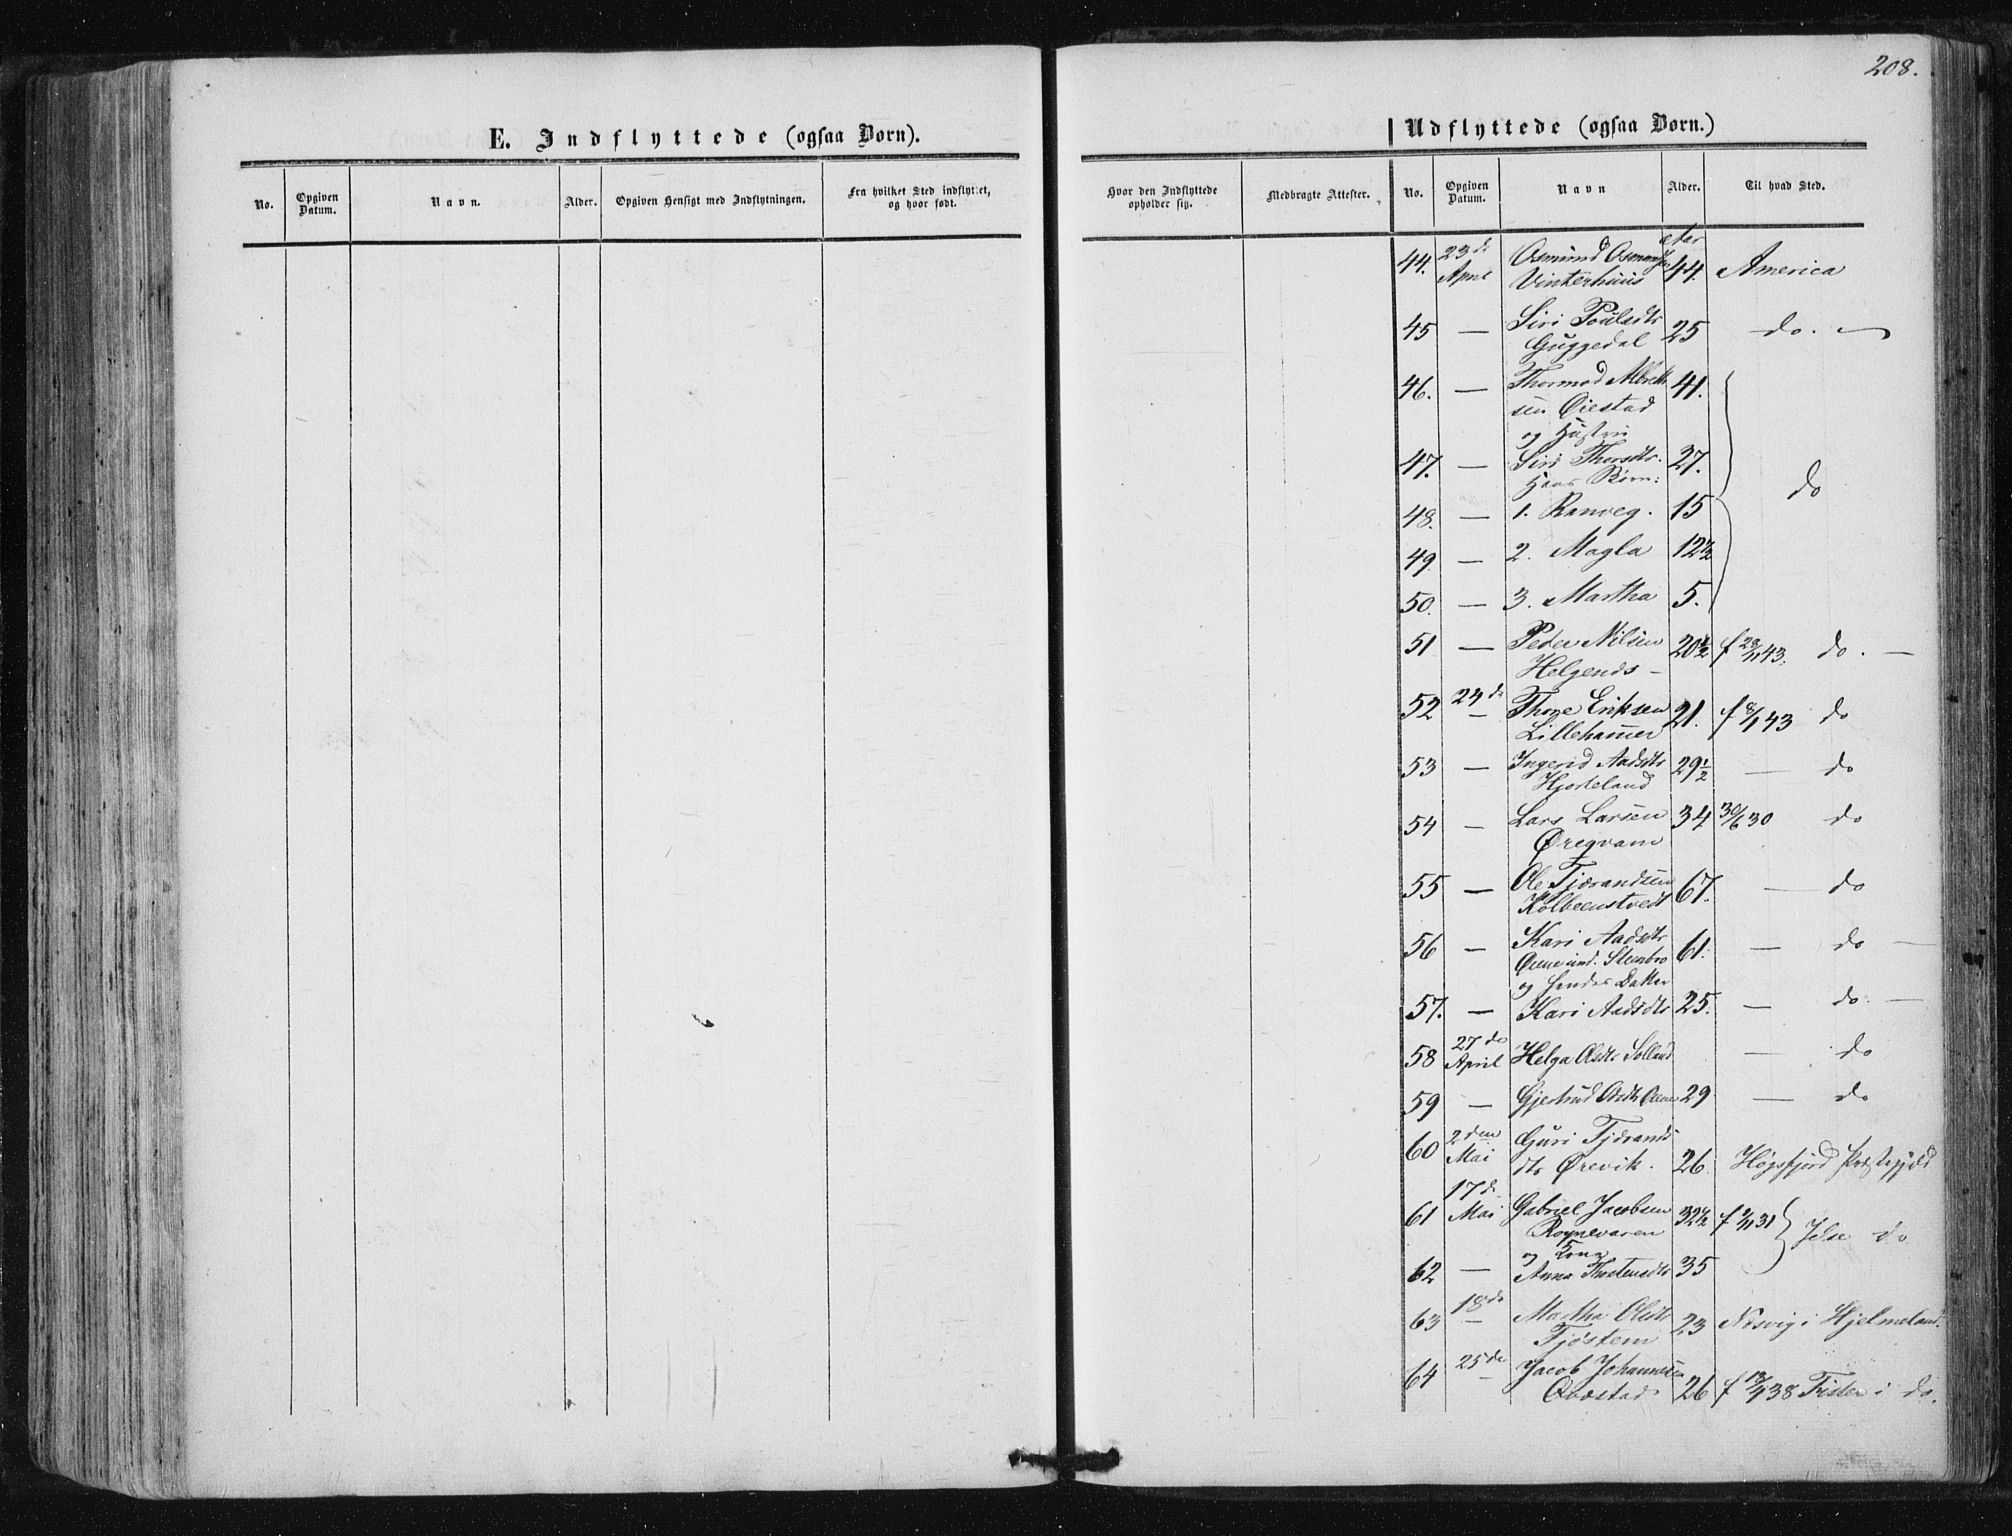 208.
E. Indflyttede (ogsaa Børn).
Udflyttede (ogsaa Børn.)
No. Opgiven Datum. Navn. Alder. Opgiven Hensigt med Indflytningen. Fra hvilket Sted indflyttet, og hvor født.
Hvor den Indflyttede opholder sig. Medbragte Attester. No. Opgiven Datum. Navn Alder. Til hvad Sted.
44. 23de April Osmund Osmunds Vinterhuus 44. America
45 — Siri Poulsdtr Guggedal 25 do. —
46. — Thormod Albrektsen Øiestad 41.
og Hustru
47. — Siri Thorsdtr. 27. do
Hans Børn:
48. — 1. Ranveg. 15
49 — 2. Magla 12½
50. — 3. Martha 5.
51 — Peder Nilsen Helgends — 20½ f 23/11 43. do. —
52 24de — Thore Eriksen Lillehamer 21. f 8/1 43 do
53 — Ingerid Aadsdtr Hjorteland 29½ — do
54 — Lars Larsen Øregvam 34 30/6 30 do
55 — Ole Tjerandsen Kolbeenstvedt 67. — do
56 — Kari Aadsdtr 61. — do —
og hendes Datter
57. — Kari Aadsdtr 25. — do. —
58 27de April Helga Olsdtr Solland — do
59 — Gjertrud Olsdtr 29 — do
60 2den Mai Guri Tjerandsdtr Ørevik. 26 Høgsfjord Præstegjeld
61 17de Mai Gabriel Jacobsen 32½ f 31
og Kone Jelse do
62 — Anna Thostensdtr 35
63 18de — Martha Olsdtr Tjøstem 23 Nesvig i Hjelmeland.
64 25de — Jacob Johannesen Qvæstad 26 f 38 Fister i do.